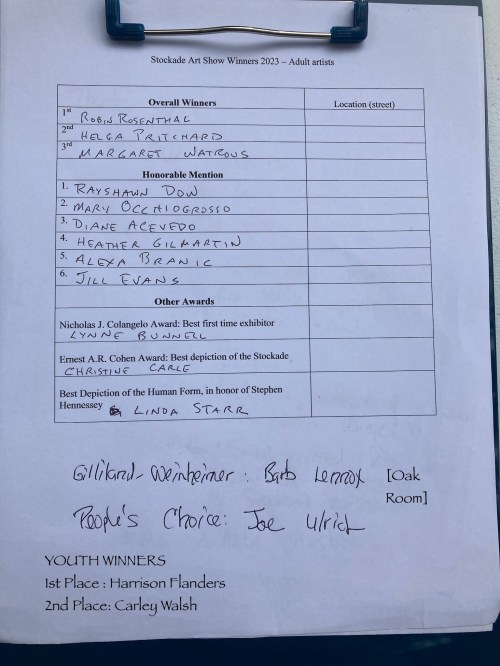 Stockade Art Show Winners 2023 – Adult artists
Overall Winners
Location (street)
1st ROBIN ROSENTHAL
2nd HELGA PRITCHARD
3rd MARGARET WATROUS
Honorable Mention
1. RAYSHAWN DOW
2. MARY OCCHIOGROSSO
3. DIANE ACEVEDO
4. HEATHER GILMARTIN
5. ALEXA BRANIC
6. JILL EVANS
Other Awards
Nicholas J. Colangelo Award: Best first time exhibitor
LYNNE BUNNELL
Ernest A.R. Cohen Award: Best depiction of the Stockade
CHRISTINE CARLE
Best Depiction of the Human Form, in honor of Stephen
Hennessey LINDA STARR
Gilliland-Weinheimer: Barb Lennox [Oak
Room]
People's Choice: Joe Ulrich
YOUTH WINNERS
1st Place : Harrison Flanders
2nd Place: Carley Walsh